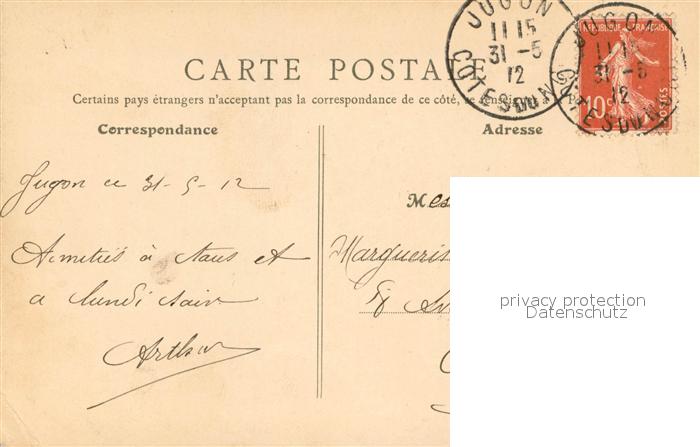 CARTE POSTALE
Certains pays étrangers n'acceptent pas la correspondance de ce côté, se renseigner à la P
Correspondance
Adresse
JUGON
11 15
31 -5
12
COTES DU N
JUGON
11 15
31 -5
12
COTES DU N
REPUBLIQUE FRANÇAISE
10c
POSTES
Jugon ce 31-5-12
Amitiés à tous et
a lundi soir
Arthur
Mes
Margueris
privacy protection
Datenschutz